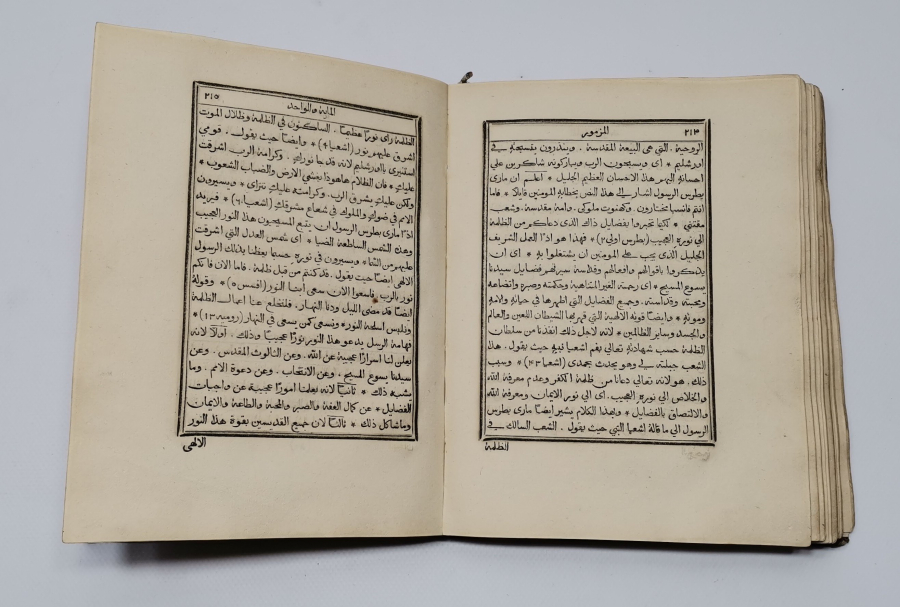 ٢١٣ المزمور
الروحية. التي هي البيعة المقدسة. وينذرون بتسبحته في
اورشليم * اي ويسبحون الرب ويباركونه شاكرين علي
احسانه اليهم هذا الاحسان العظيم الجليل * اعلم ان ماري
بطرس الرسول اشار الي هذا النص بخطابه المومنين قايلا * فاما
انتم فانسبا مختارون. وكهنوت ملوكي. وامة مقدسة. وشعب
مقتني * لكيما تخبروا بفضايل ذاك الذي دعاكم من الظلمة
الي نوره العجيب (بطرس اولي ٢) * فهذا هو اذًا العمل الشريف
الجليل الذي يجب علي المومنين ان يشتغلوا به * اي ان
يذكروا باقوالهم وافعالهم وقداسة سيرتهم فضايل سيدنا
يسوع المسيح * اي رحمته الغير المتناهية وحكمته وصبره واتضاعه
ومحبته وقداسته. وجميع الفضايل التي اظهرها في حياته والامه
وموته * وايضا قوته الالهية التي قهر بها الشيطان اللعين والعالم
والجسد وساير الظالمين * لانه لاجل ذلك انقذنا من سلطان
الظلمة حسب شهادته تعالي بفم اشعيا نبيه حيث يقول. هذا
الشعب جبلته لي وهو يحدث بحمدي (اشعيا ٤٣) * وسبب
ذلك. هو لانه تعالي دعانا من ظلمة الكفر وعدم معرفة الله
والخلاص الي نوره العجيب. اي الي نور الايمان ومعرفة الله
والالتصاق بالفضايل * وبهذا الكلام يشير ايضا ماري بطرس
الرسول الي ما قاله اشعيا النبي حيث يقول. الشعب السالك في
الظلمة
الماية والواحد ٢١٥
الظلمة راي نورًا عظيمًا. الساكنون في الظلمة وظلال الموت
اشرق عليهم نور (اشعيا ٩) * وايضا حيث يقول. قومي
استنيري يا اورشليم لانه قد جا نورك. وكرامة الرب اشرقت
عليك * فان الظلام هاهوذا يغشي الارض والضباب الشعوب *
ولكن عليك يشرق الرب. وكرامته عليك تتراي * ويسيرون
الامم في ضوك والملوك في شعاع مشرقك (اشعيا ٦٠) * فيريد
اذًا ماري بطرس الرسول ان يتبع المسيحيون هذا النور العجيب
وهذه الشمس الساطعة الضيا * اي شمس العدل التي اشرقت
عليهم من السما * ويسيرون في نوره حسبما يعظنا بذلك الرسول
الالهي ايضا حيث يقول. قد كنتم من قبل ظلمة. فاما الان فانكم
نور بالرب. فاسعوا الان سعي ابنا النور (افسس ٥) * وقوله
ايضا قد مضي الليل ودنا النهار. فلنقلع عنا اعمال الظلمة
ونلبس اسلحة النور * ونسعي كمن يسعي في النهار (رومية ١٣) *
فهامة الرسل يدعو هذا النور نورًا عجيبًا * وذلك. اولًا لانه
يعلن لنا اسرارًا عجيبة عن الله. وعن الثالوث المقدس. وعن
سيدنا يسوع المسيح. وعن الانتخاب. وعن دعوة الامم. وما
يشبه ذلك * ثانيًا لانه يعلمنا امورًا عجيبة عن واجبات
الفضايل * عن كمال العفة والصبر والمحبة والطاعة والايمان
وما شاكل ذلك * ثالثًا لان جميع القديسين بقوة هذا النور
الالهي